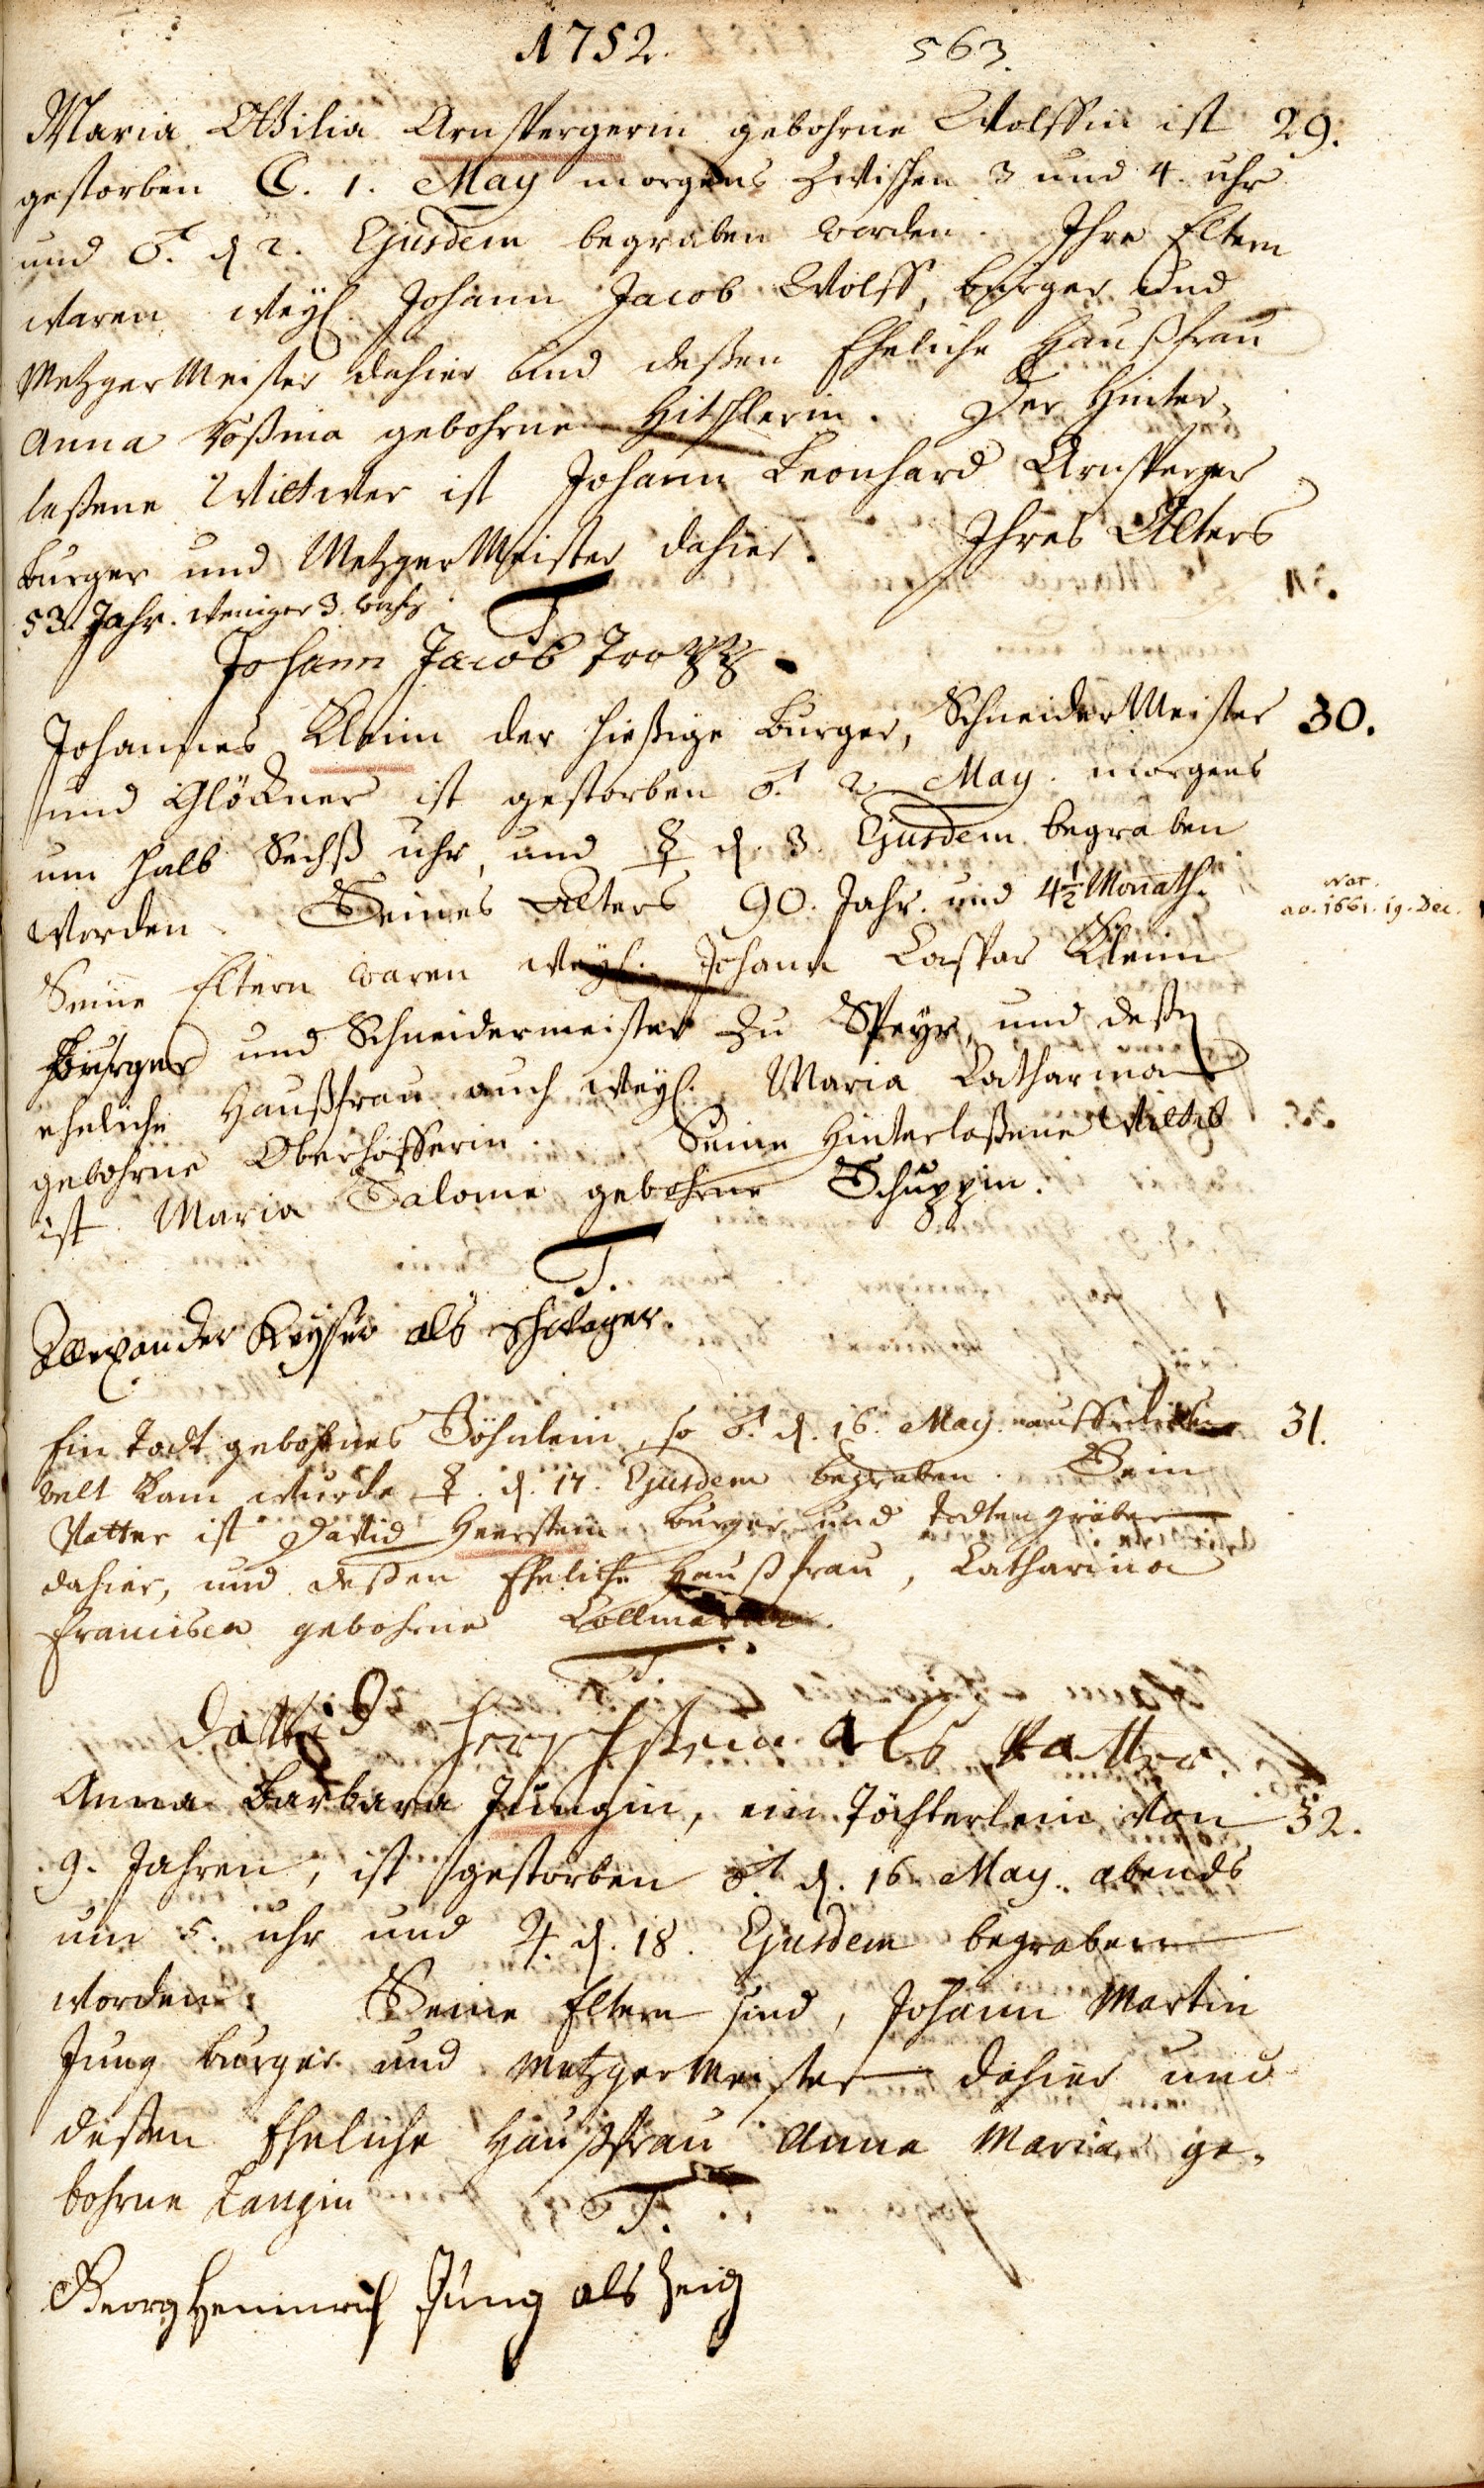 1752. 563.
Maria Ottilia Arnspergerin gebohrne Wolffin ist 29.
gestorben ☾. 1. May morgens zwischen 3 und 4. uhr
und ♂. d. 2. Ejusdem begraben worden. Ihre Eltern
waren weyl. Johann Jacob Wolff, burger und
Metzger Meister dahier und deßen Eheliche Haußfrau
Anna Rosina gebohrne Hitschlerin. Der Hinter-
laßene Wittwer ist Johann Leonhard Arnsperger
burger und Metzger Meister dahier. Ihres Alters
53. Jahr. weniger 3. woch.
T.
Johann Jacob
Johannes Kleim der hießige burger, Schneider Meister 30.
und Glöckner ist gestorben ♂. 2. May. morgens
um halb Sechß uhr, und ☿ d. 3. Ejusdem begraben
worden. Seines Alters 90. Jahr. und 4½ Monath. nat.
ao. 1661. 19. Dec.
Seine Eltern waren weyl. Johann Caspar Kleim
burger und Schneidermeister zu Speyr, und deßen
eheliche Haußfrau auch weyl. Maria Catharina
gebohrne Oberhofferin. Seine Hinterlaßene Wittib
ist Maria Salome gebohrne Schuppin.
T.
Allexander Keyser als Schwager.
Ein todt gebohrnes Söhnlein, so ♂. d. 16. May. auff die 31.
welt kam wurde ☿. d. 17. Ejusdem begraben. Sein
Vatter ist David Herrstein, burger und todtengräber
dahier, und deßen Eheliche Haußfrau, Catharina
Francisca gebohrne
T.
Dattid als Vatter.
Anna Barbara Jungin, ein Töchterlein von 32.
9. Jahren, ist gestorben ♂. d. 16. May. abends
um 5. uhr und ♃. d. 18. Ejusdem begraben
worden. Seine Eltern sind, Johann Martin
Jung burger und Metzger Meister dahier und
deßen Eheliche Haußfrau Anna Maria ge-
bohrne Langin
T.
Georg Heinrich Jung als zeig